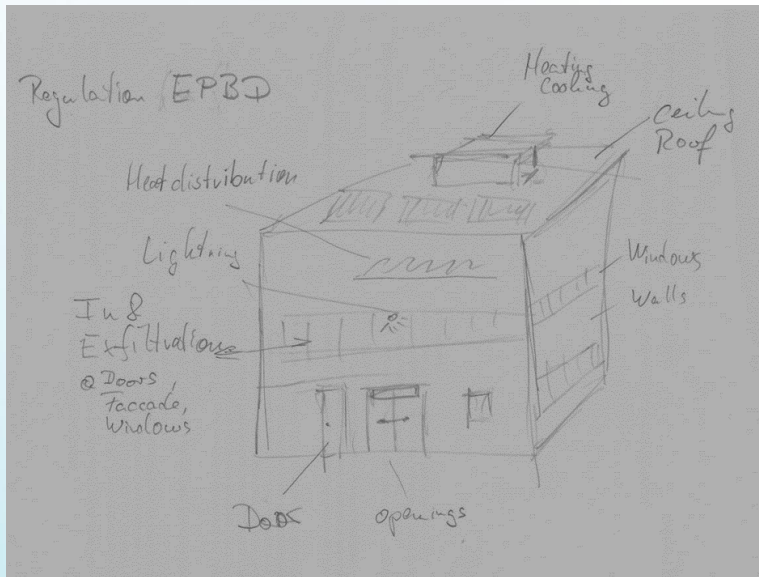 Regulation EPBD
Heating
Cooling
Ceiling
Roof
Heat distribution
Lightning
Windows
Walls
In &
Exfiltration
@ Doors,
Faccade,
Windows
Doors
openings